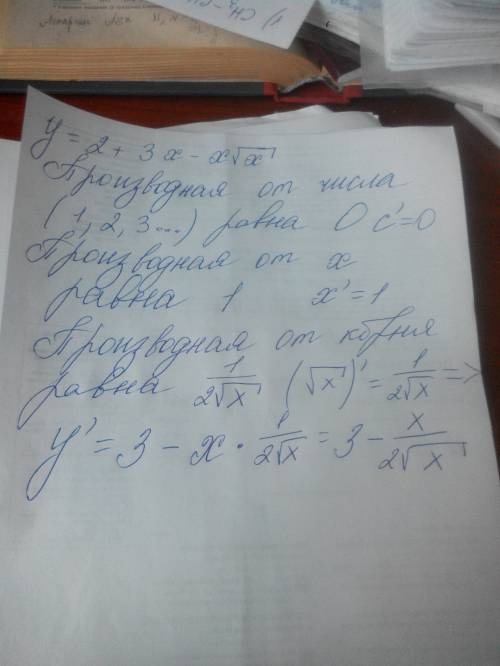 y = 2 + 3x - x√x
Производная от числа
(1, 2, 3...) равна 0 c' = 0
Производная от x
равна 1 x' = 1
Производная от корня
равна 1/(2√x) (√x)' = 1/(2√x) =>
y' = 3 - x · 1/(2√x) = 3 - x/(2√x)